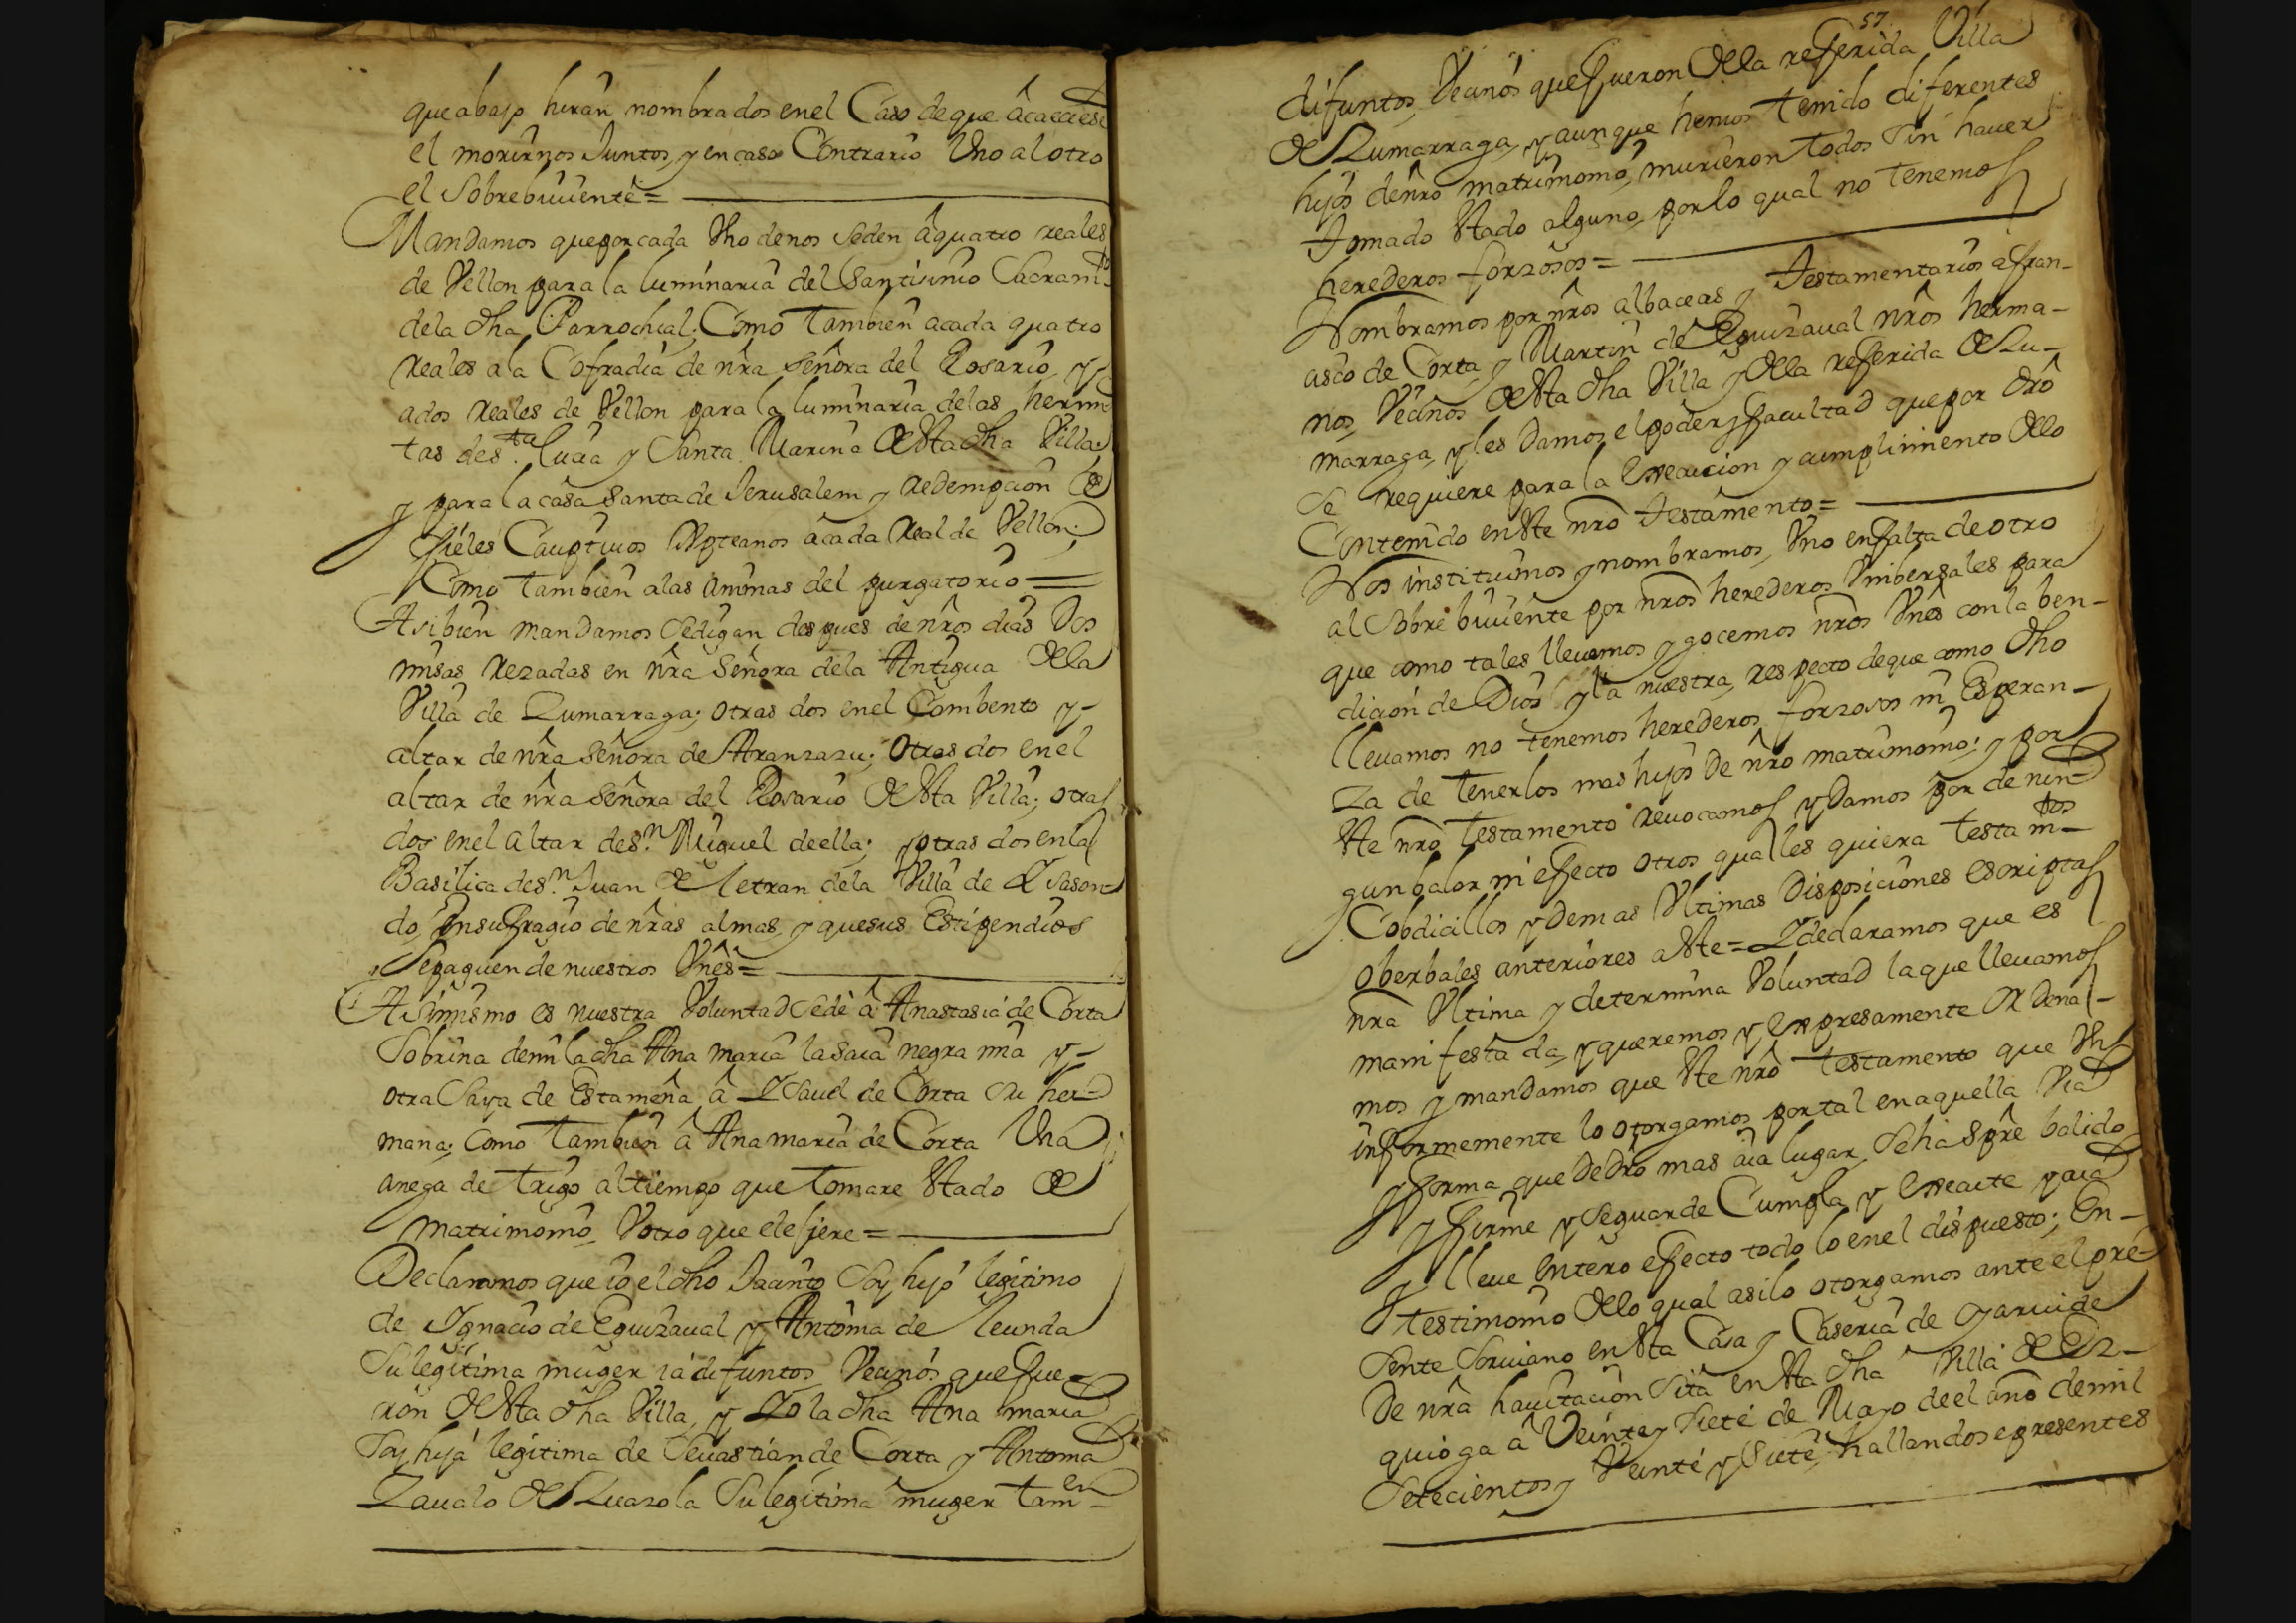 que abajo hirân nombrados en el Caso de que âcaeciese
el morirnos Juntos, y en caso Contrario Uno al otro
el Sobrebiuiente =
Mandamos que por cada Uno de nos se den â quatro reales
de Vellon para la luminaria del Santisimo Sacram.to
de la dha Parrochial; Como Tambien a cada quatro
reales a la Cofradia de nrâ señora del Rosario, y
a dos reales de Vellon para la luminaria de las hermi
tas de s.ta Lucia y Santa Marina de sta dha Villa;
y para la casa santa de Jerusalem y redempcion de
fieles Cauptiuos Xpteanos â cada real de Vellon;
Como Tambien a las animas del purgatorio =
Asi bien mandamos se digan despues de nrôs dias dos
misas rezadas en nrâ señora de la Antigua de la
Villa de Zumarraga; otras dos en el Combento y
altar de nrâ señora de Aranzazu; otras dos en el
altar de nrâ señora del Rosario de sta Villa; otras
dos en el altar de s.n Miguel de ella; y otras dos en la
Basilica de s.n Juan de letran de la Villa de Ysason
do, en sufragio de nrâs almas, y que sus Estipendios
se paguen de nuestros Vnês =
Asimismo es nuestra Voluntad se dê â Anastasia de Corta
Sobrina de mi la dha Ana maria la saia negra mia y
otra Saya de Estameña â Ysauel de Corta su her
mana; como Tambien â Ana maria de Corta Una
anega de Trigo al tiempo que Tomare stado de
matrimonio, V otro que elejiere =
Declaramos que io el dho Jacinto Soy hijo legitimo
de Ygnacio de Eguizaual y Antonia de Leunda
Su legitima muger ia difuntos, Vecinos que fue
ron de sta dha Villa, y Yo la dha Ana maria
Soy hija legitima de Seuastian de Corta y Antonia
Zaualo de Zuazola Su legitima muger tam.en
57
difuntos, Vecinos que fueron de la referida Villa
de Zumarraga, y aunque hemos Tenido diferentes
hijos de nrô matrimonio, murieron todos Sin hauer
Tomado stado alguno, por lo qual no tenemos
herederos forzosos =
Nombramos por nrôs albaceas y Testamentarios a fran
cisco de Corta, y Martin de Eguizaual nrôs herma
nos, Vecinos de sta dha Villa y de la referida de Zu
marraga, y les damos el poder y facultad que por drô
Se requiere para la execucion y cumplimiento de lo
Contenido en ste nrô Testamento =
Nos instituimos y nombramos, Vno en falta de otro
al Sobrebiuiente por nrôs herederos Vnibersales para
que como tales lleuemos y gocemos nrôs Vnês con la ben
dicion de Dios y la nuestra, respecto de que como dho
lleuamos no tenemos herederos forzosos ni Esperan
za de Tenerlos mas hijos de nrô matrimonio; y por
ste nrô Testamento reuocamos y damos por de nin
gun balor ni efecto otros qualles quiera Testam.tos
Cobdicillos y demas Vltimas Disposiciones escriptas
o berbales anteriores a ste = Y declaramos que es
nrâ Vltima y determina Voluntad la que lleuamos
manifestada, y queremos y expresamente ordena
mos y mandamos que ste nrô testamento que Vn
informemente lo otorgamos por tal en aquella Via
y forma que de drô mas aia lugar, Se ha Spre balido
y firme y se guarde Cumpla y execute para
y lleue entero efecto todo lo en el dispuesto; En
testimonio de lo qual asi lo otorgamos ante el pre
sente Scriuano en sta Casa y Caseria de Oyaruide
de nrâ hauitacion Sita en sta dha Villa de Ez
quioga â Veinte y Siete de Mayo de el año de mil
Setecientos y Veinte y Siete, hallandose presentes